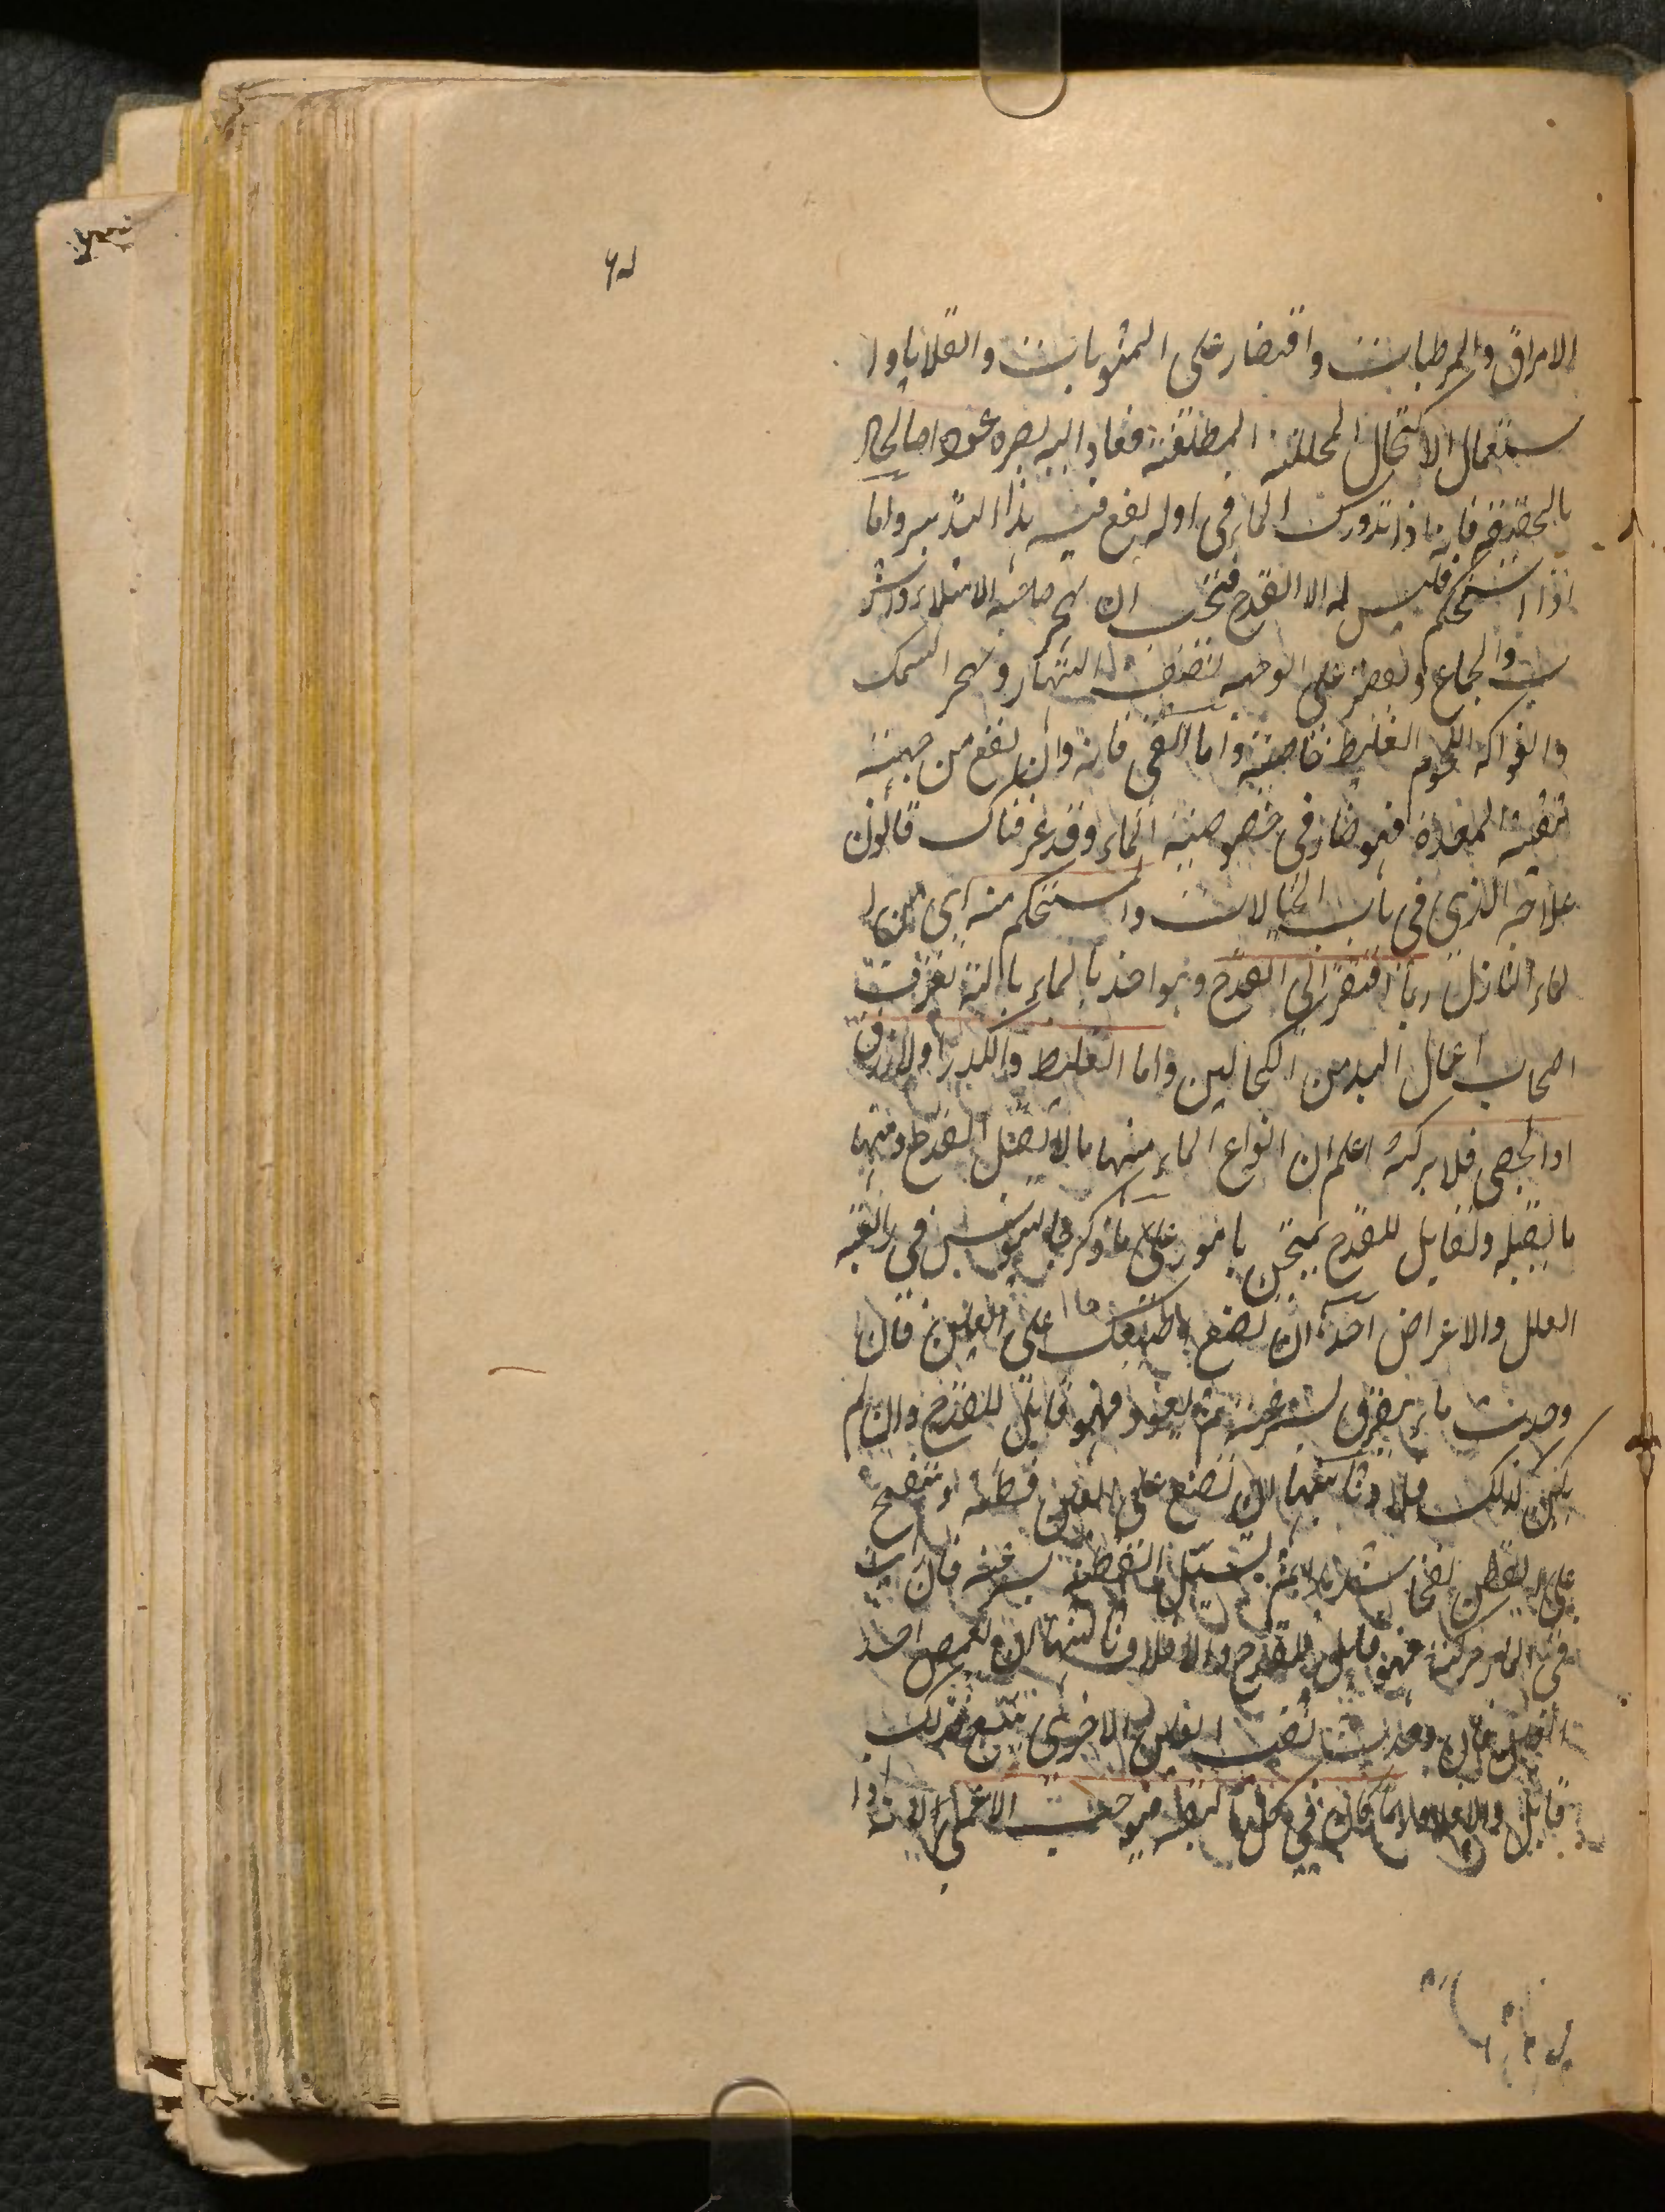 الامراق والمرطبات واقتصار على المشويات والقلايا وا
ستعمال الاكتحال المحللته الملطفته فعاد اليه بصره عودا صالحا
بالحقيقة فانه اذا تدورك الماء فى اوله نفع فيه هذا التدبير واما
اذا استحكم فليس له الا القدح فيجب ان يهجر صاحبه الامتلاء والشر
ب والجماع ويقصر على الوجبه نصف النهار ويهجر السمك
والفواكه اللحوم الغليظ خاصته واما القى فانه وان نفع من جهته
تنقيته المعدة فهو ضار فى خصوصيته الماء وقد عرفناك قانون
علاجه الذى فى باب الخيالات والمستحكم منه اى من ا
لماء النازل ربما افتقر الى القدح وهو اخذ بالماء بالته تعرفت
اصحاب اعمال اليد من الكحالين واما الغليظ والكدر اوالازرق
اوالجصى فلا بركته اعلم ان انواع الماء منها ما لا يقبل القدح ومنها
ما يقبله ولقابل للقدح يمتحن بامور على ما ذكر جالينوس فى رابعته
العلل والاعراض احدها ان تضع اصبعك على العين فان
وجدت ماء يتفرق بسرعته ثم يعود فهو قابل للقدح وان لم
يكن كذلك فلا وثانيها ان تضع على العين قطنه وتنفخ
على القطن نفخا شديدا ثم تشيل القطنه بسرعته فان رايت
فى الماء حركته فهو قابل للقدح والا فلا وثالثها ان تغمض احد
العين فان وجدت ثقب العين الاخرى تتسع فذلك
قابل والا فلا